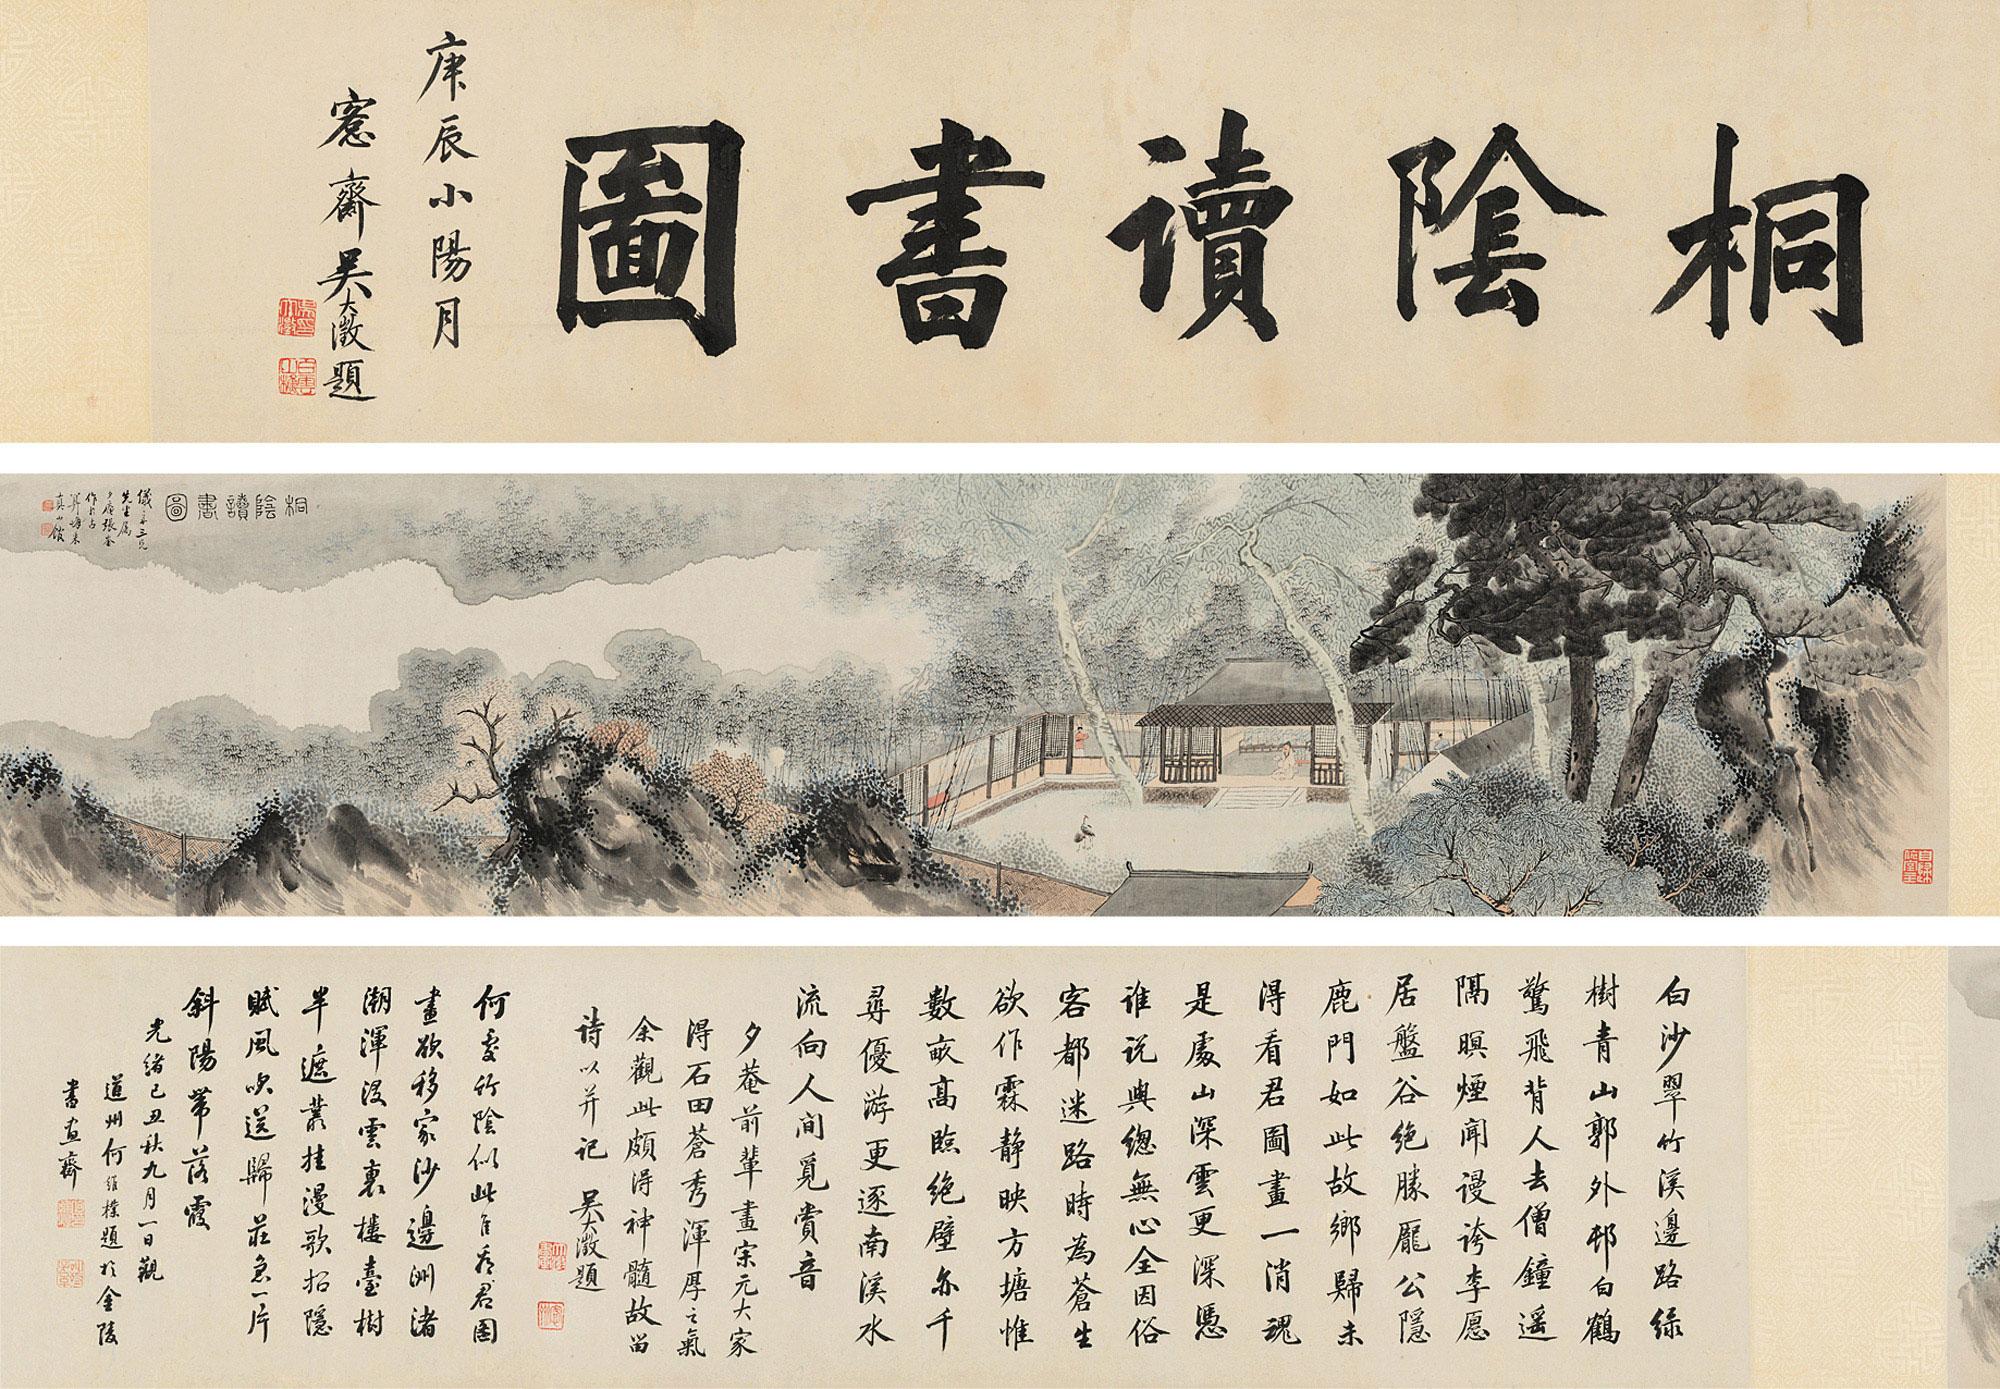 桐陰讀書圖
庚辰小陽月
愙齋吳大澂題
桐陰讀書圖
先生屬
夕庵張崟
白沙翠竹溪邊路綠
樹青山郭外邨白鶴
驚飛背人去僧鐘遥
隔暝煙聞謾誇李愿
居盤谷絶勝龐公隱
鹿門如此故鄉歸未
得看君圖畫一消魂
是處山深雲更深憑
誰説與總無心全因俗
客都迷路時為蒼生
欲作霖静映方塘惟
數畝高臨絶壁亦千
尋優游更逐南溪水
流向人間覓賞音
夕菴前輩畫宗元大家
得石田蒼秀渾厚之氣
余觀此頗得神髓故留
詩以并記 吳大澂題
何處竹陰似此君圖
畫欲移家沙邊洲渚
潮渾没雲裏樓臺樹
半遮叢桂漫歌招隱
賦風吹送歸莊急一片
斜陽帶落霞
光緒己丑秋九月一日觀
道州何維樸題於金陵
書畫齋